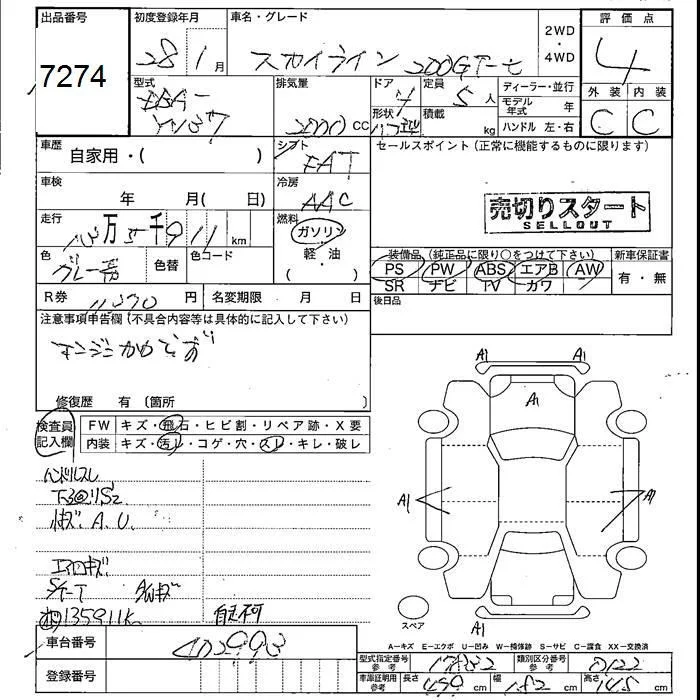 出品番号
7274
初度登録年月
28 1 月
車名・グレード
スカイライン 200GT-t
2WD
・
4WD
評価点
4
外装 内装
C C
型式
DBA-
YV37
排気量
2000 CC
ドア 4
形状
定員 5 人
積載 kg
ディーラー・並行
モデル年式 年
ハンドル 左・右
車歴 自家用・( )
シフト
FAT
車検 年 月( 日)
冷房
AAC
走行 13万5千911 km
燃料
ガソリン
軽・油
( )
色 グレー 色替
色コード
R券 円
名変期限 月 日
セールスポイント (正常に機能するものに限ります)
売切りスタート
SELLOUT
装備品 (純正品に限り○をつけて下さい)
PS PW ABS エアB AW
SR ナビ TV カワ
新車保証書
有・無
後日品
注意事項申告欄 (不具合内容等は具体的に記入して下さい)
修復歴 有 〔箇所 〕
検査員記入欄
FW キズ・飛石・ヒビ割・リペア跡・X要
内装 キズ・汚レ・コゲ・穴・スレ・キレ・破レ
ハンドルスレ
A.U.
エアロキズ
S/T-T
135911K 自走不可
A1 A1
A1
A1 A1
A1
スペア
A-キズ E-エクボ U-凹み W-補修跡 S-サビ C-腐食 XX-交換済
車台番号
登録番号
型式指定番号 参考
類別区分番号 参考 0122
車庫証明用 参考 長さ 479 cm 幅 182 cm 高さ 145 cm